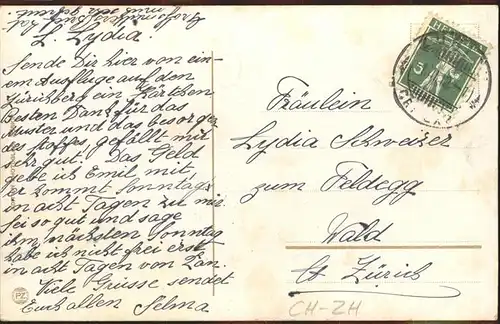 L. Lydia.
Sende Dir hier von ein-
em Ausfluge auf den
Zürichberg ein Kärtchen
Besten Dank für das
Muster und das besorgen
des Stoffes, gefällt mir
sehr gut. Das Geld
gebe ich Emil mit,
er kommt Sonntags
in acht Tagen zu mir.
Sei so gut und sage
ihm, nächsten Sonntag
habe ich nicht frei erst
in acht Tagen
Viele Grüsse sendet
Euch allen Selma
HELVETIA
5
Fräulein
Lydia Schweizer
zum Feldegg
Wald
Ct. Zürich
CH-ZH
PZ